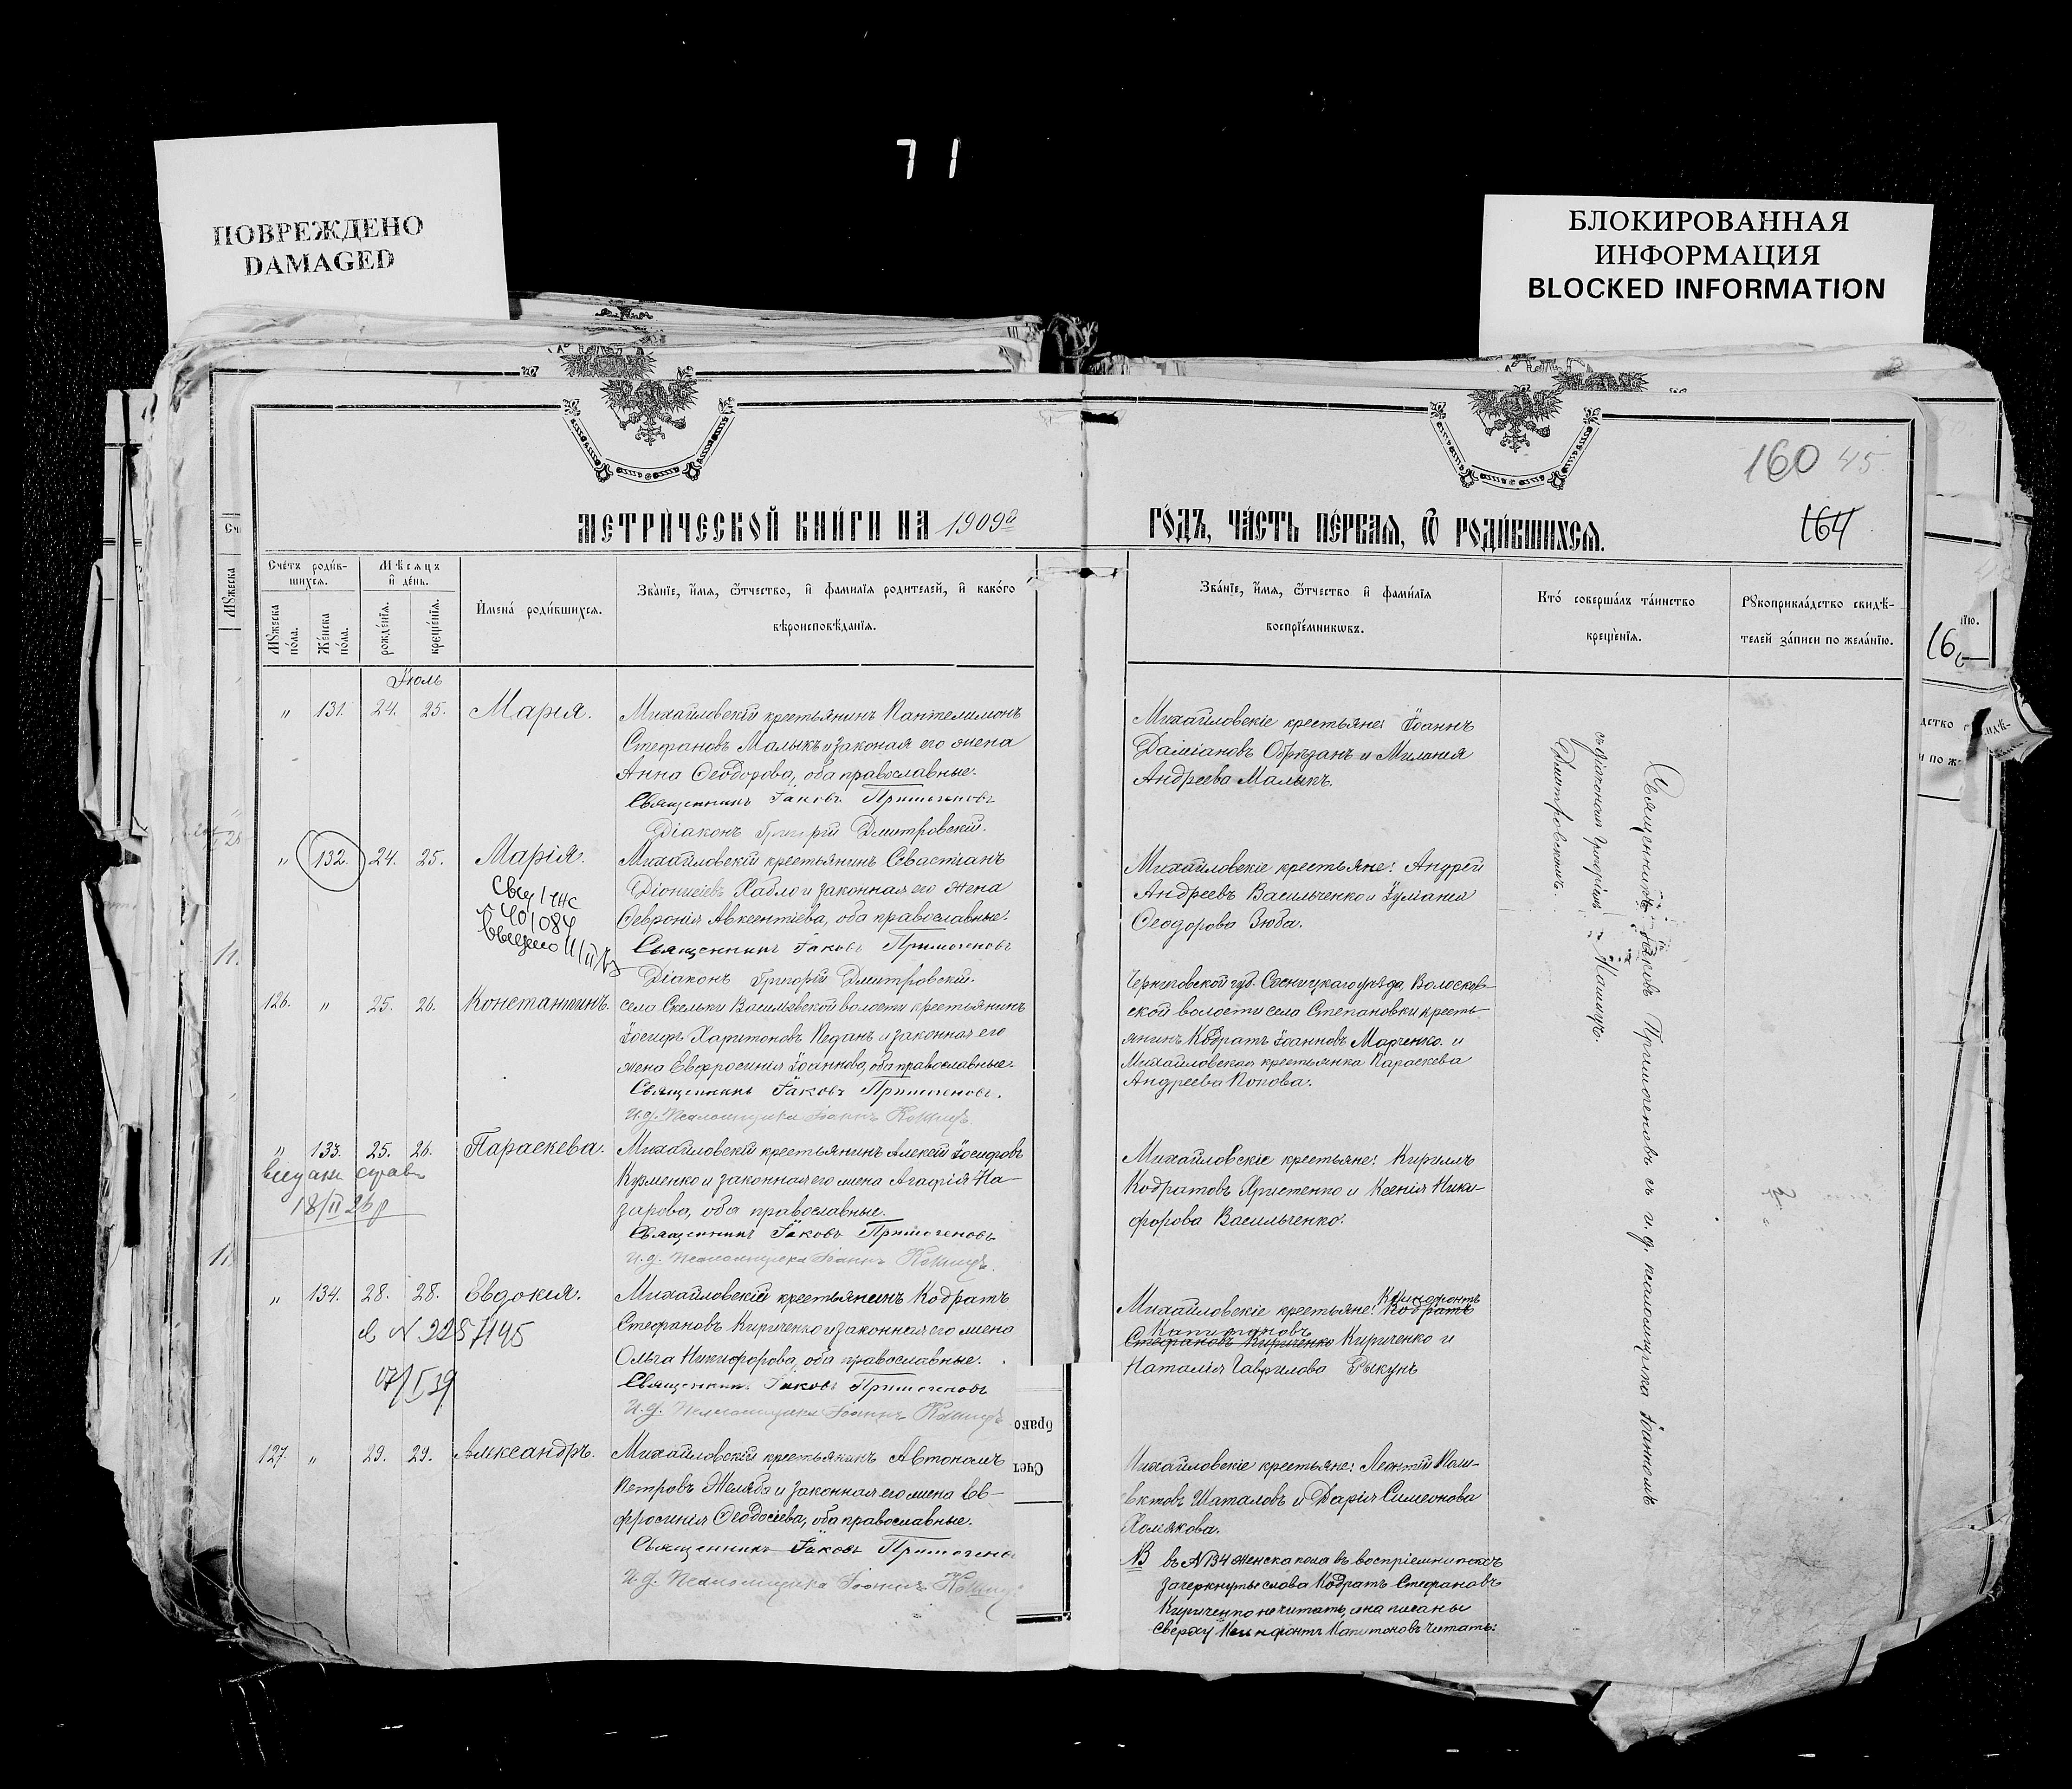 71
ПОВРЕЖДЕНО
DAMAGED
БЛОКИРОВАННАЯ
ИНФОРМАЦИЯ
BLOCKED INFORMATION
160 45.
164
МЕТРИ́ЧЕСКОЙ КНИ́ГИ НА 1909й ГО́ДЪ, ЧА́СТЬ ПЕ́РВАЯ, Ѿ РОДИ́ВШИХСЯ.
Сче́тъ роди́в-
шихся.
Мѣсяцъ
и де́нь.
Мꙋжеска по́ла.
Же́нска по́ла.
рожде́нїя.
креще́нїя.
И҆мена̀ роди́вшихся.
Зва́нїе, и҆́мя, ѻ҆́тчество, и҆ фами́лїя роди́телей, и҆ како́го
вѣроисповѣ́данїя.
Зва́нїе, и҆́мя, ѻ҆́тчество и҆ фами́лїя
воспрїе́мникѡвъ.
Кто̀ соверша́лъ та́инство
креще́нїя.
Рꙋкоприкла́дство свидѣ́-
телей за́писи по жела́нїю.
Іюль
" 131. 24. 25. Марія.
Михайловскій крестьянинъ Пантелимонъ
Стефановъ Малыкъ и законая его жена
Анна Ѳеодорова, оба православные.
Священникъ Іаковъ Примогеновъ
Діаконъ Григорій Дмитровскій.
Михайловскіе крестьяне: Іоаннъ
Даміановъ Обрѣзанъ и Миланія
Андреева Малыкъ.
" 132. 24. 25. Марія.
Михайловскій крестьянинъ Севастіанъ
Діонисіевъ Хабло и законная его жена
Ѳевронія Авксентіева, оба православные.
Священникъ Іаковъ Примогеновъ
Діаконъ Григорій Дмитровскій.
401084
Михайловскіе крестьяне: Андрей
Андреевъ Васильченко и Іуманія
Ѳеодорова Зюба.
126. " 25. 26. Константинъ.
села Скельки Васильевской волости крестьянинъ
Іосифъ Харитоновъ Педанъ и законная его
жена Евфросинія Іоаннова, оба православные.
Священникъ Іаковъ Примогеновъ.
И.д. Псаломщика Іоаннъ Кошицъ.
Черниговской губ. Сосницкаго уѣзда, Волосков-
ской волости села Степановки кресть-
янинъ Кодратъ Іоанновъ Марченко и
Михайловская крестьянка Параскева
Андреева Попова.
" 133. 25. 26. Параскева.
Михайловскій крестьянинъ Алексій Іосифовъ
Курменко и законная его жена Агафія На-
зарова, оба православные.
Священникъ Іаковъ Примогеновъ
И.д. Псаломщика Іоаннъ Кошицъ.
18/II 26
Михайловскіе крестьяне: Кириллъ
Кодратовъ Христенко и Ксенія Ники-
форова Васильченко.
" 134. 28. 28. Евдокія.
Михайловскій крестьянинъ Кодратъ
Стефановъ Кириченко и законная его жена
Ольга Никифорова, оба православные.
Священникъ Іаковъ Примогеновъ
И.д. Псаломщика Іоаннъ Кошицъ
17/I 39
Ксинофонтъ
Михайловскіе крестьяне: Кодратъ
Капитоновъ
Стефановъ Кириченко Кириченко и
Наталія Гаврилова Рыкунъ
127. " 29. 29. Александръ.
Михайловскій крестьянинъ Автономъ
Петровъ Желяба и законная его жена Ев-
фросинія Ѳеодосіева, оба православные.
Священникъ Іаковъ Примогено
И.д. Псаломщика Іоаннъ Кошиц
Михайловскіе крестьяне: Леонтій Поли-
евктовъ Шаталовъ и Дарія Симеонова
Хомякова.
NB въ N134 женска пола въ воспріемникахъ
зачеркнутые слова Кодратъ Стефановъ
Кириченко не читать, а написаны
сверху Ксинофонтъ Капитоновъ читать:
Священникъ Іаковъ Примогеновъ съ и.д. псаломщика Іоанномъ
Кашицъ.
съ Діакономъ Григоріемъ
Дмитровскимъ.
брако
Счет